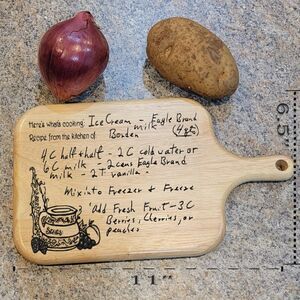 Here's what's cooking: Ice Cream - Eagle Brand
Recipe from the kitchen of: Borden milk (4 qts)
4 C half + half - 2 C cold water or
6 C milk - 2 cans Eagle Brand
milk - 2 T vanilla.
Mix into Freezer + Freeze
Add Fresh Fruit - 3 C
Berries, Cherries, or
peaches
6.5"
11"